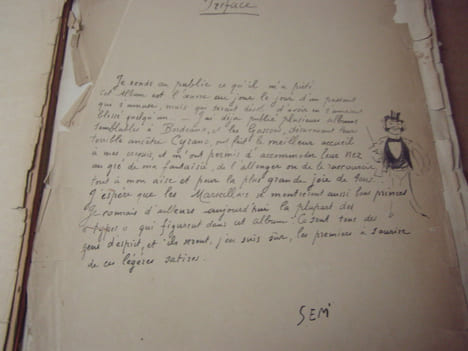 Préface
Je rends au public ce qu'il m'a prêté
Cet album est l'œuvre au jour le jour d'un passant
qui s'amuse, mais qui serait désolé d'avoir en s'amusant
blessé quelqu'un. J'ai déjà publié plusieurs albums
semblables à Bordeaux, et les Gascons, désarmant leur
terrible ancêtre Cyrano, ont fait le meilleur accueil
à mes essais, et m'ont permis d'accommoder leur nez
au gré de ma fantaisie, de l'allonger ou de le raccourcir
tout à mon aise et pour la plus grande joie de tous
J'espère que les Marseillais se montreront aussi bons princes
Je connais d'ailleurs aujourd'hui la plupart des
"types" qui figurent dans cet album. Ce sont tous des
gens d'esprit, et ils seront, j'en suis sûr, les premiers à sourire
de ces légères satires.
SEM